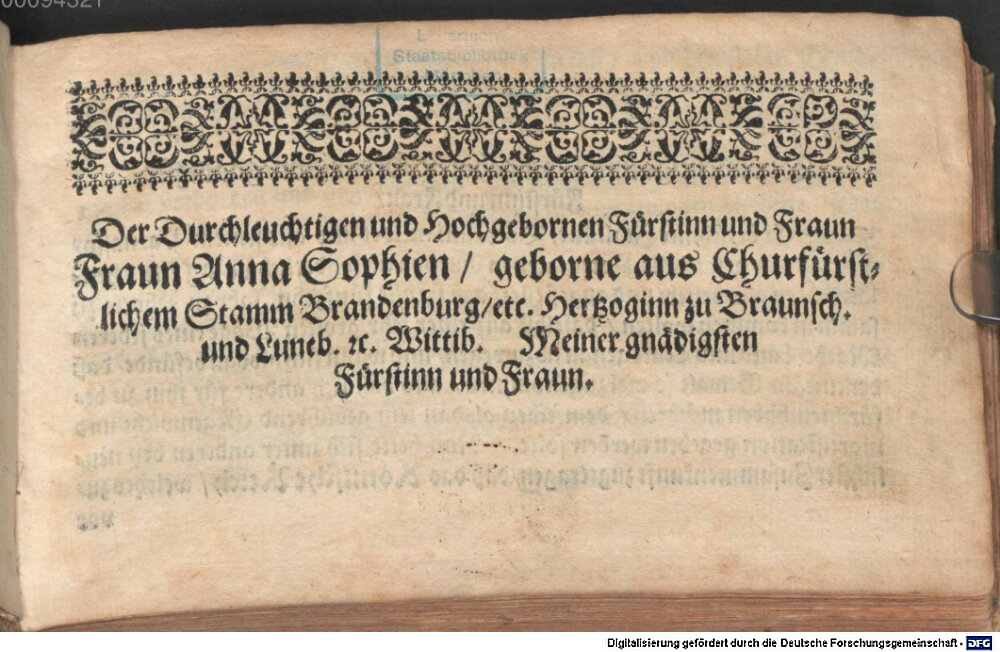 00094521
Staatsbibliothek
Der Durchleuchtigen und Hochgebornen Fürstinn und Fraun
Fraun Anna Sophien / geborne aus Churfürst-
lichem Stamm Brandenburg/etc. Hertzoginn zu Braunsch.
und Luneb. ꝛc. Wittib. Meiner gnädigsten
Fürstinn und Fraun.
Digitalisierung gefördert durch die Deutsche Forschungsgemeinschaft - DFG